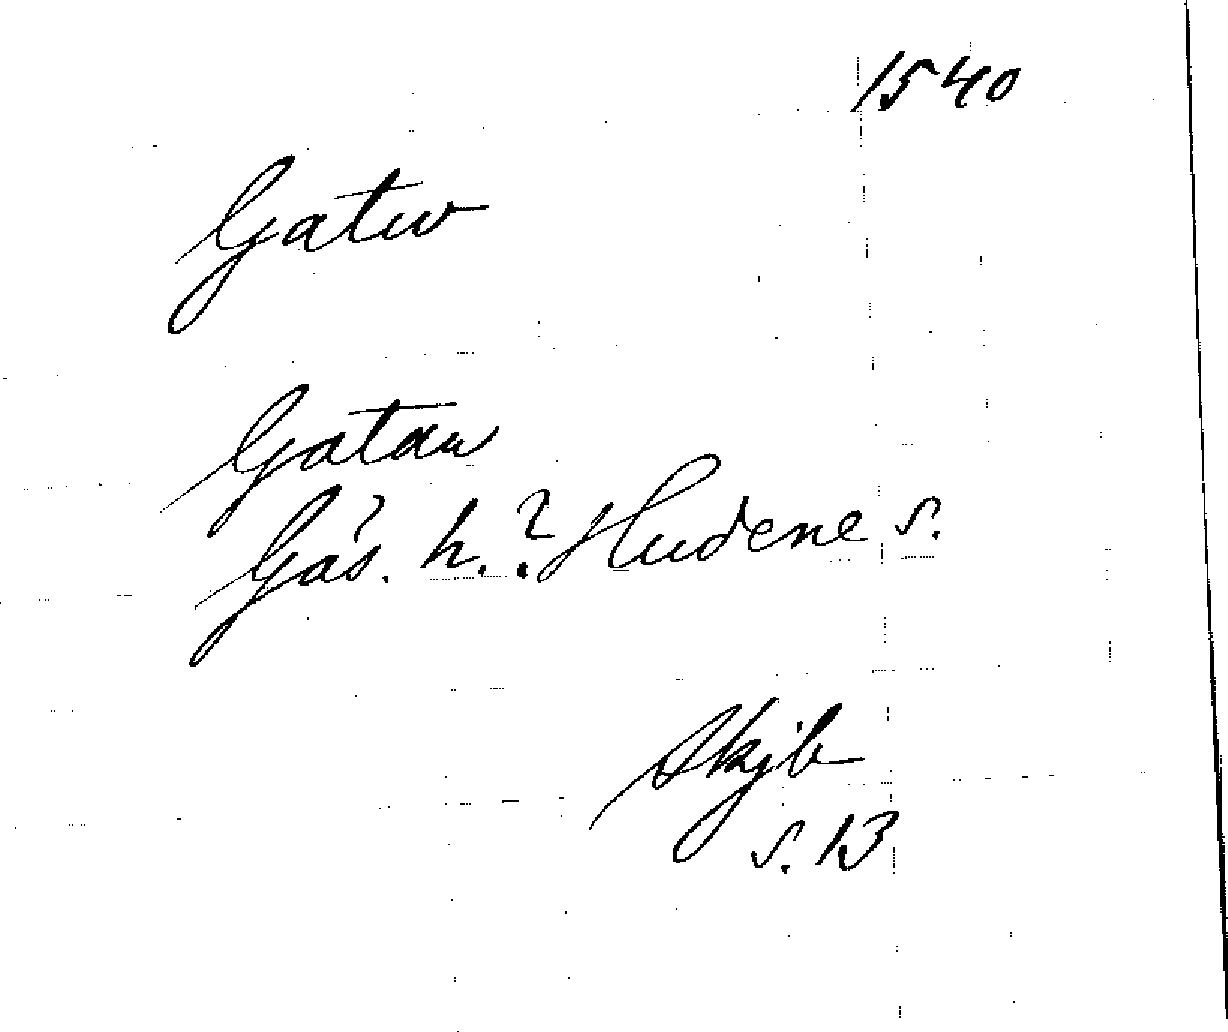 1540
Gatw
Gatan
Gäs. h.? Hudene s.
Skjb
s. 13